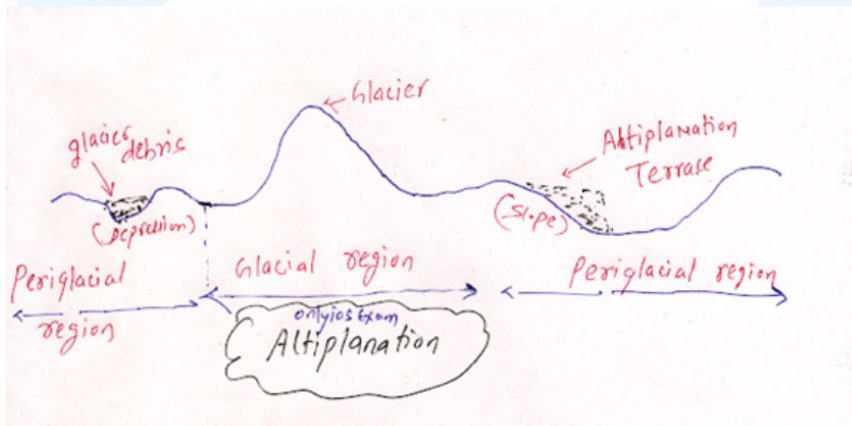 Glacier
glacies
debris
Altiplanation
Terrase
(Depression)
(Slope)
Periglacial
region
Glacial region
Periglacial region
onlyiasExam
Altiplanation